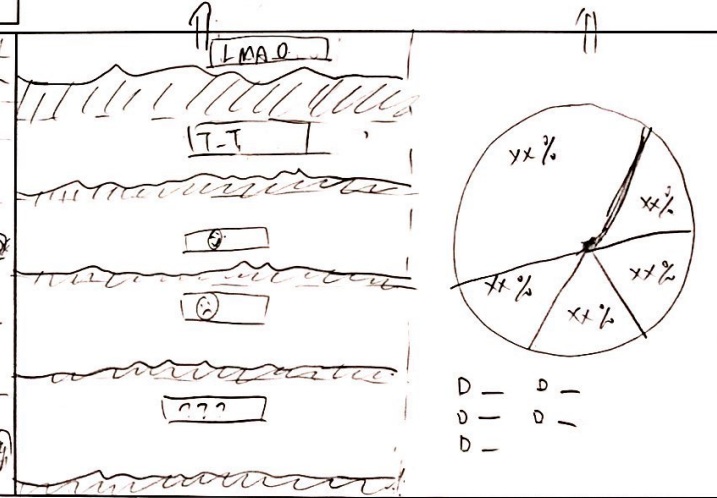 LMAO
T-T
???
xx%
xx%
xx%
xx%
xx%